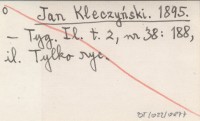 o Jan Kleczyński. 1895.
— Tyg. Il. t. 2, nr 38: 188,
il. Tylko ryc.